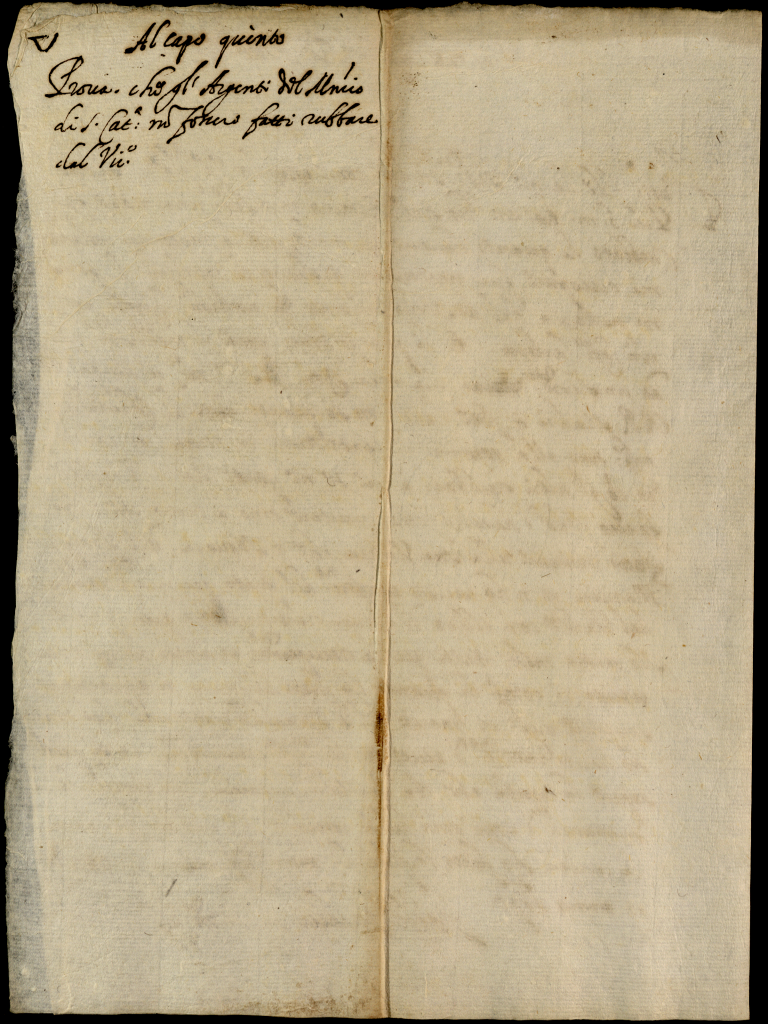 Al capo quinto
Prova. che gl'Argenti del Mn'rio
di S. Cat.ª nō fosero fatti rubbare
dal Vic.º